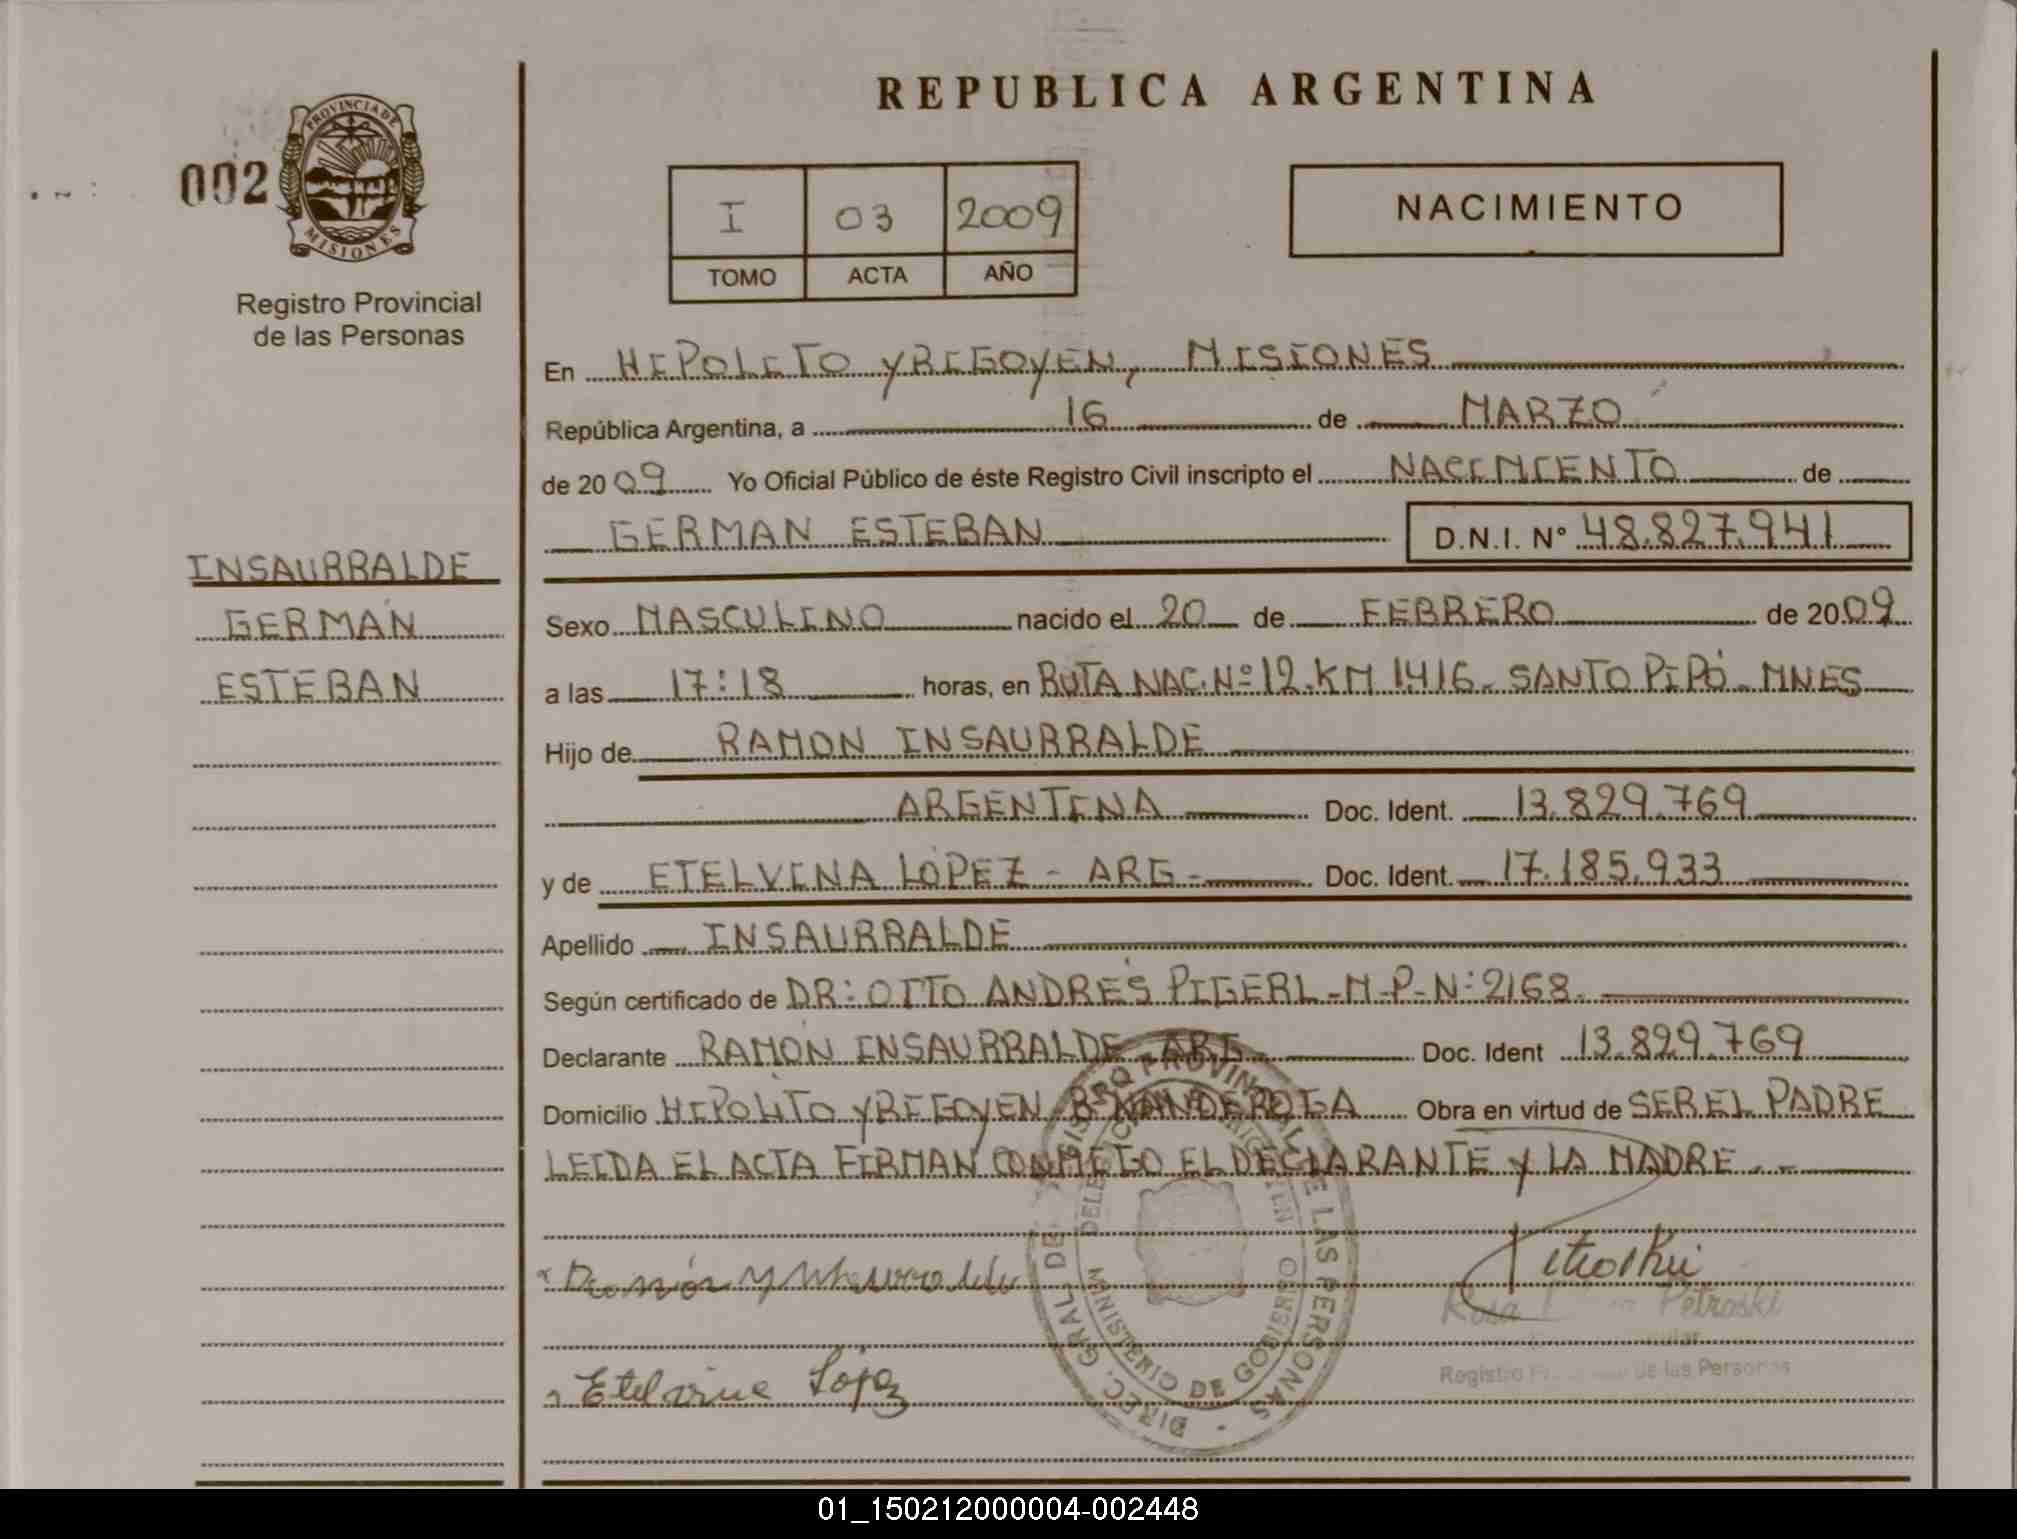 REPUBLICA ARGENTINA
PROVINCIA DE MISIONES
002
Registro Provincial
de las Personas
I 03 2009
TOMO ACTA AÑO
NACIMIENTO
En HIPOLITO YRIGOYEN, MISIONES
República Argentina, a 16 de MARZO
de 2009 Yo Oficial Público de éste Registro Civil inscripto el NACIMIENTO de
GERMAN ESTEBAN D.N.I. Nº 48.827.941
INSAURRALDE
GERMÁN
ESTEBAN
Sexo MASCULINO nacido el 20 de FEBRERO de 2009
a las 17:18 horas, en RUTA NAC. Nº 12 KM 1416 - SANTO PIPÓ - MNES
Hijo de RAMON INSAURRALDE
ARGENTINA Doc. Ident. 13.829.769
y de ETELVINA LOPEZ - ARG - Doc. Ident. 17.185.933
Apellido INSAURRALDE
Según certificado de DR: OTTO ANDRÉS PIGERL - M-P-N: 2168
Declarante RAMÓN INSAURRALDE - ARG - Doc. Ident 13.829.769
Domicilio HIPOLITO YRIGOYEN Bº ÑANDEROGA Obra en virtud de SER EL PADRE
LEIDA EL ACTA FIRMAN CONMIGO EL DECLARANTE Y LA MADRE. -
DIREC. GRAL DEL REGISTRO PROVINCIAL DE LAS PERSONAS
MINISTERIO DE GOBIERNO
Ramón Ynsaurralde
Petroski
Rosa Petroski
Registro de las Personas
Etelvina López
01_150212000004-002448